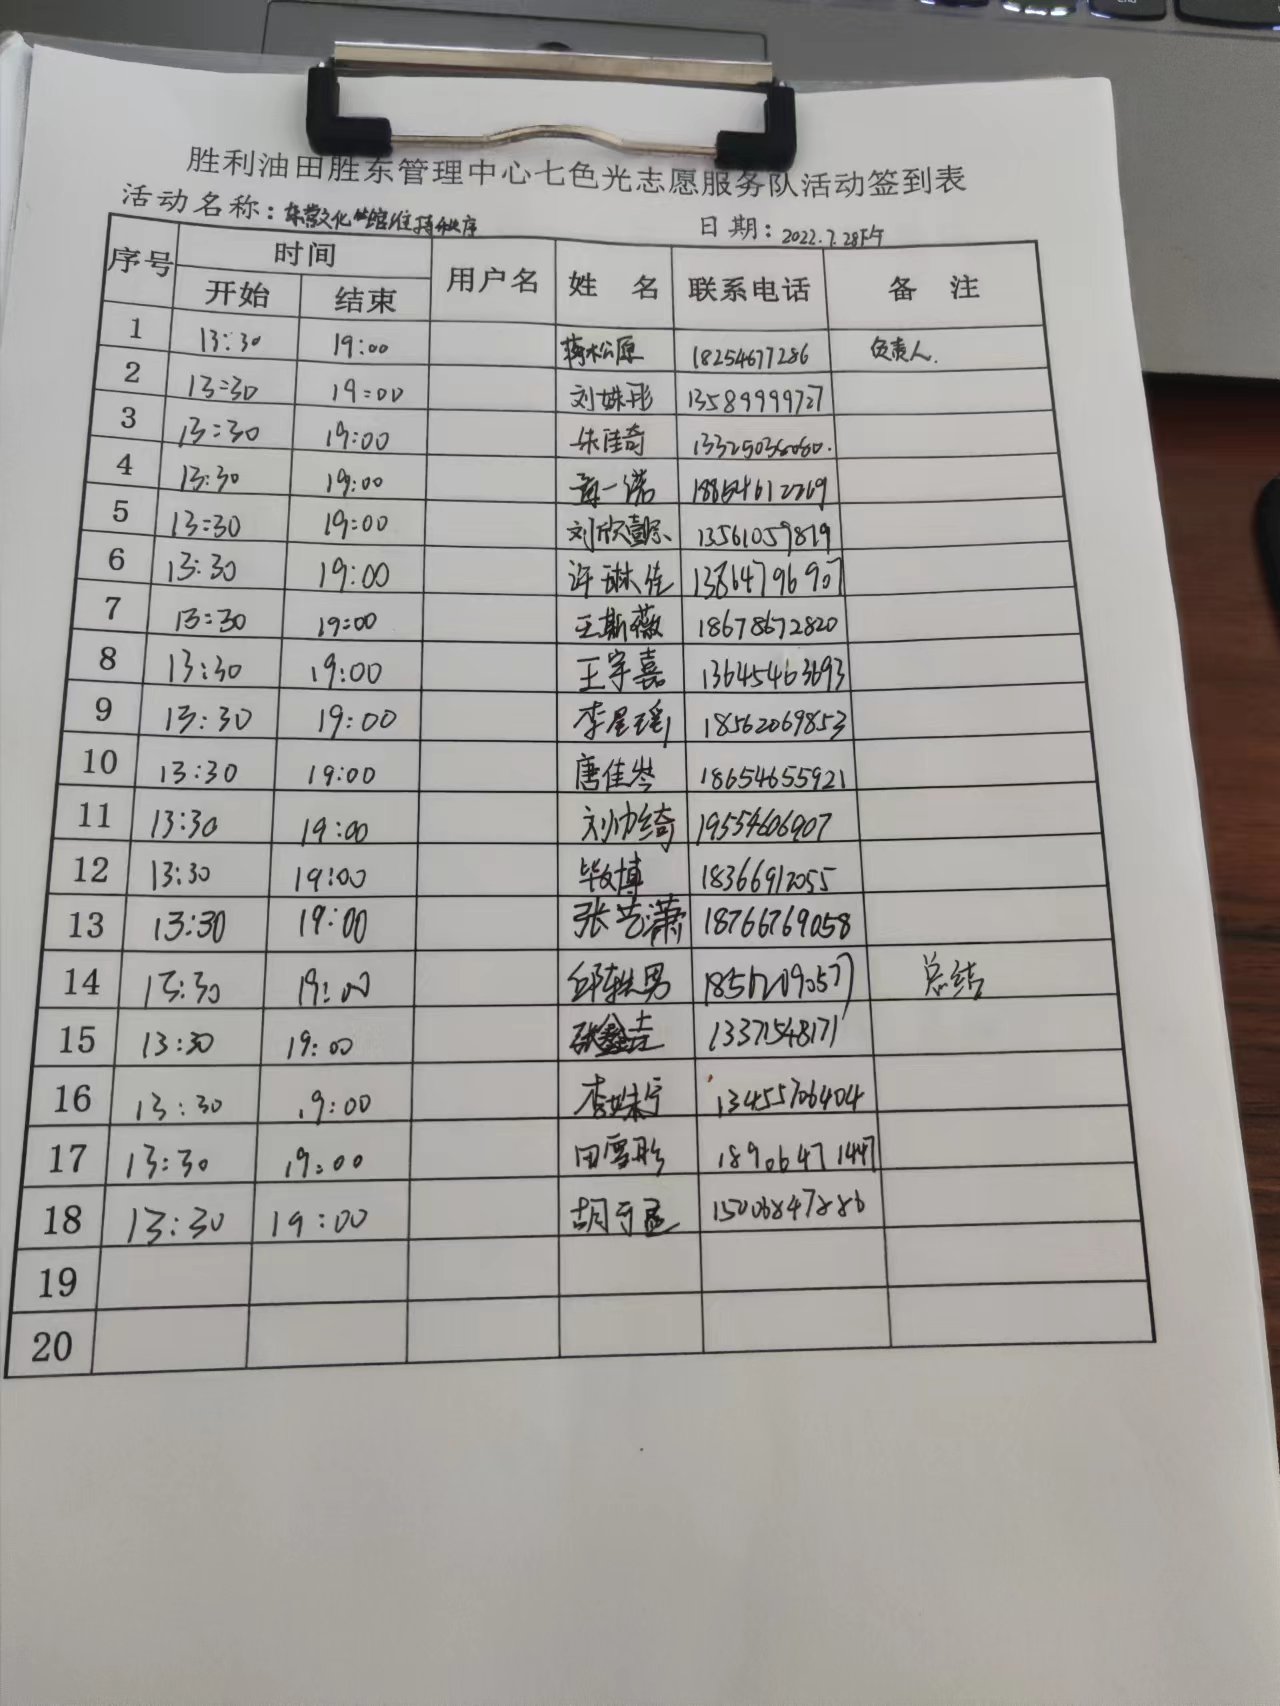 胜利油田胜东管理中心七色光志愿服务队活动签到表
活动名称：东营文化馆维持秩序 日期：2022.7.28下午
序号 时间 用户名 姓 名 联系电话 备 注
开始 结束
1 13:30 19:00 松原 18254677286 负责人.
2 13:30 19:00 刘姝彤 13589999727
3 13:30 19:00 朱佳奇 13325036060.
4 13:30 19:00 一诺
5 13:30 19:00 刘欣 13561059819
6 13:30 19:00 许琳佳 13864796907
7 13:30 19:00 王斯薇 18678672820
8 13:30 19:00 王宇嘉 13645463693
9 13:30 19:00 李星瑶 18562069853
10 13:30 19:00 唐佳岑 18654655921
11 13:30 19:00 刘帅绮 19554606907
12 13:30 19:00 毕博 18366912055
13 13:30 19:00 张艺潇 18766769058
14 13:30 19:00 邱轶男 总结
15 13:30 19:00 13371548171
16 13:30 19:00 李姝宁 13455706404
17 13:30 19:00 田雪彤 18906471447
18 13:30 19:00 胡 15006847886
19
20